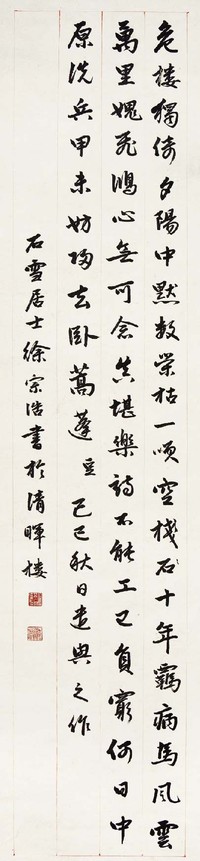 危樓獨倚夕陽中默數榮枯一空棧石十年羈病馬風雲
萬里愧飛鴻心無可念真堪樂詩不能工已負窮何日中
原洗兵甲未妨歸去臥蒿蓬 己巳秋日遣興之作
石雪居士徐宗浩書於清暉樓